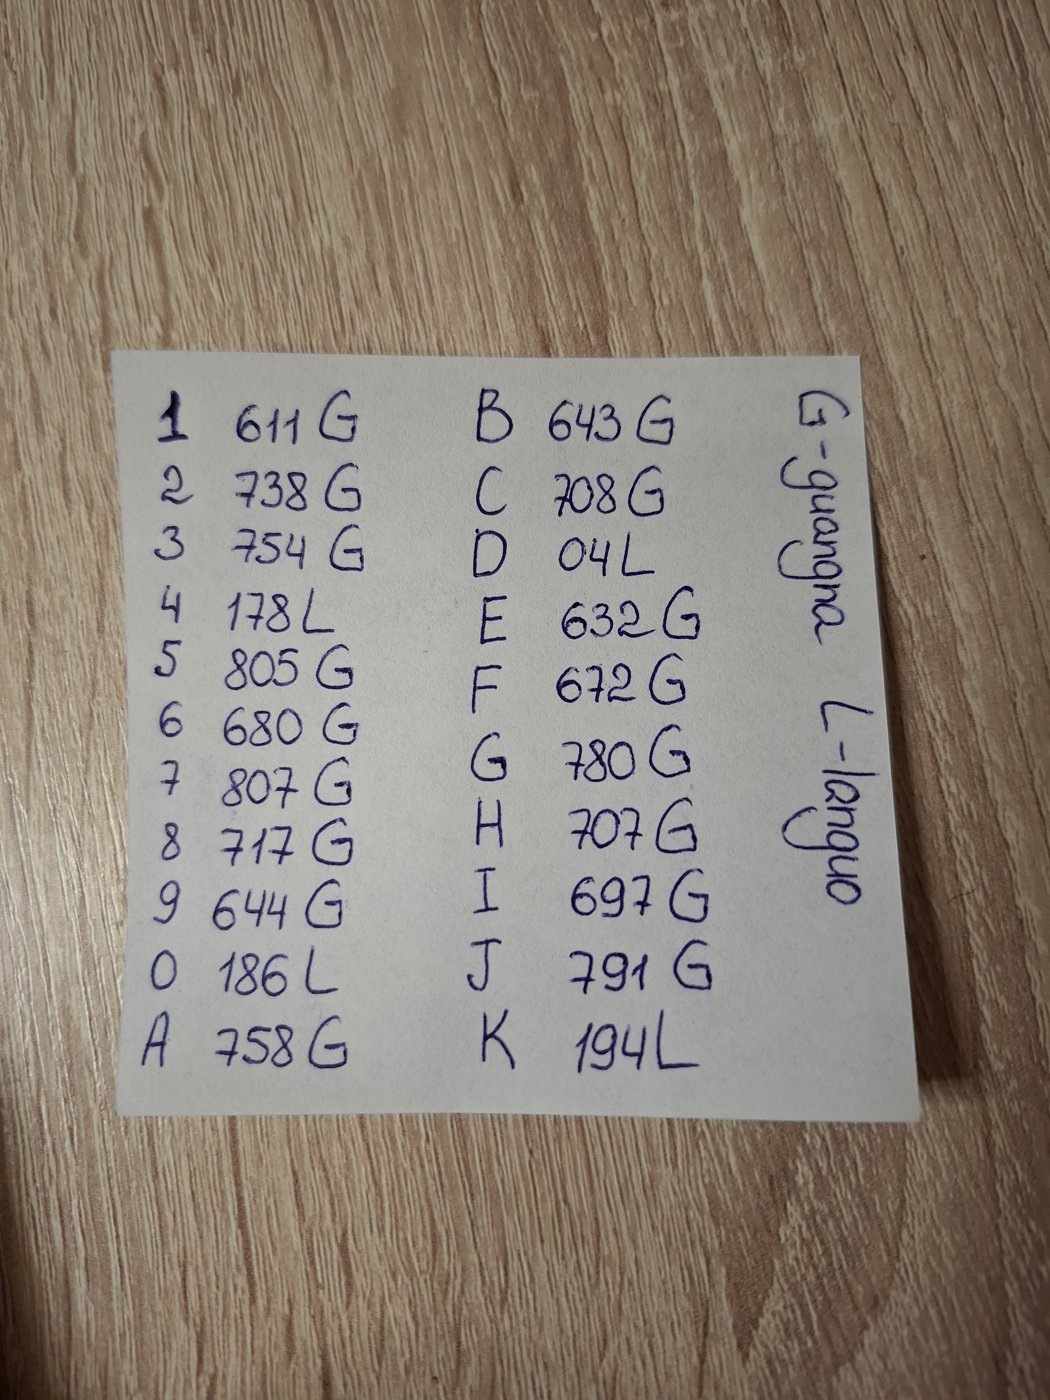 1 611 G
2 738 G
3 754 G
4 178 L
5 805 G
6 680 G
7 807 G
8 717 G
9 644 G
0 186 L
A 758 G
B 643 G
C 708 G
D 04 L
E 632 G
F 672 G
G 780 G
H 707 G
I 697 G
J 791 G
K 194 L
G - guangna L - languo